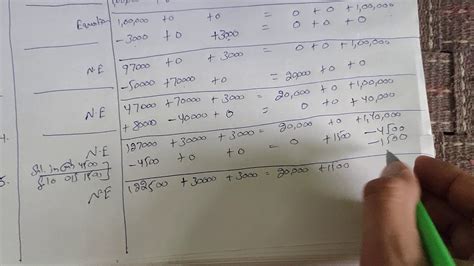 Equation 1,00,000 +0 +0 = 0 + 0 + 1,00,000
-3000 +0 +3000 = 0 + 0 + 0
N.E 97000 + 0 + 3000 = 0 + 0 + 1,00,000
-50000 +70000 + 0 = 20000 + 0 + 0
N.E 47000 + 70000 + 3000 = 20,000 + 0 + 1,00,000
+80000 -40000 + 0 = 0 + 0 + 40,000
N.E 127000 + 30000 + 3000 = 20,000 + 0 + 1,40,000
-4500 + 0 + 0 = 0 + 1500 -4500
-1500
5.
N.E 122500 + 30000 + 3000 = 20,000 + 1500